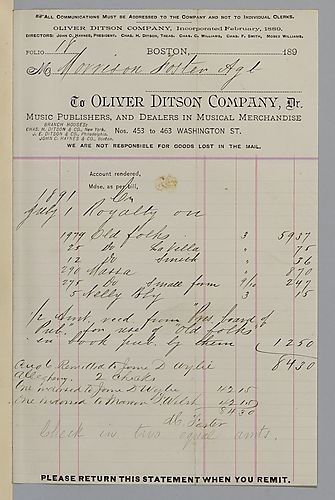 ALL COMMUNICATIONS MUST BE ADDRESSED TO THE COMPANY AND NOT TO INDIVIDUAL CLERKS.
OLIVER DITSON COMPANY, Incorporated February, 1889.
DIRECTORS: JOHN C. HAYNES, PRESIDENT. CHAS. H. DITSON, TREAS. CHAS. C. WILLIAMS, CHAS. F. SMITH, MOSES WILLIAMS.
FOLIO 18 BOSTON, 189
M Morrison Foster Agt
To OLIVER DITSON COMPANY, Dr.
MUSIC PUBLISHERS, AND DEALERS IN MUSICAL MERCHANDISE
BRANCH HOUSES:
CHAS. H. DITSON & CO., New York.
J. E. DITSON & CO., Philadelphia.
JOHN C. HAYNES & CO., Boston.
Nos. 453 to 463 WASHINGTON ST.
WE ARE NOT RESPONSIBLE FOR GOODS LOST IN THE MAIL.
Account rendered,
Mdse. as per bill,
Cr
1891
July 1 Royalty on
1979 Old folks 3 5937
25 Do La Villa " 75
12 Do Smith " 36
290 Massa " 870
275 Do Small form 9/10 247
5 Nelly Bly 3 15
1/2 Amt. recd from "Pres board of
Pub." for use of "Old folks"
in book pub. by them 1250
8430
Aug 6 Remitted to Jane D Wylie
Allegheny 2 Checks
One indorsed to Jane D Wylie 42.15
One indorsed to Marion D Welsh 42.15
84.30
M. Foster
Check in two equal amts.
PLEASE RETURN THIS STATEMENT WHEN YOU REMIT.